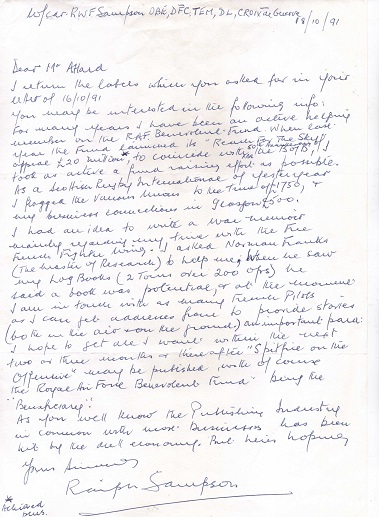 W/Cdr R.W.F. Sampson OBE, DFC, TEM, DL, CROIX de Guerre
18/10/91
Dear Mr Attard
I return the labels which you asked for in your
letter of 16/10/91
You may be interested in the following info:
For many years I have been an active helping
member on the RAF. Benevolent Fund. When last
year the Fund launched its "Reach For The Sky"
appeal £20 million * to coincide with the 50th Anniversary of BofB, I
took as active a fund raising effort as possible.
As a Scottish Rugby International of yesteryear
I flogged the various Unions to the tune of £1750, &
my business connections in Glasgow £500.
I had an idea to write a war memoir
mainly regarding my time with the Free
French Fighter Wing. I asked Norman Franks
(The Master of Research) to help me, when he saw
my Log Books (2 Tours over 200 ops) he
said a book was potential, & at the moment
I am in touch with as many French Pilots
as I can get addresses from to provide stories
(both in the air & on the ground) an important part.
I hope to get all I want within the next
two or three months & thereafter "Spitfire on the
Offensive" may be published with of course
the Royal Air Force Benevolent Fund being the
"Beneficiary".
As you well know the Publishing Industry
in common with most Businesses has been
hit by the dull economy. But heres hoping
Yours Sincerely
Ralph Sampson
* Achieved
plus.